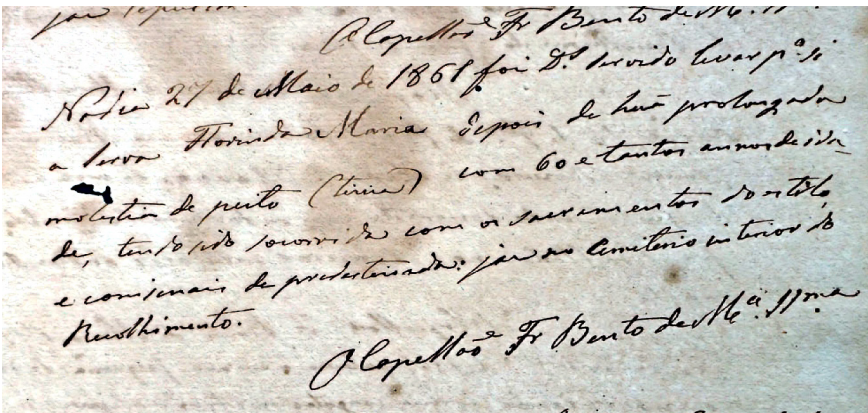 O Capellaõ Fr Bento de M.ª
No dia 27 de Maio de 1861 foi D.s servido levar p.ª si
a serva Florinda Maria depois de huã prolongada
molestia de peito (tisica) com 60 e tantos annos de ida-
de, tendo sido socorrida com os sacramentos do estilo,
e com sinais de predestinada: jaz no Cemiterio interior do
Recolhimento.
O Capellaõ Fr Bento de M.ª